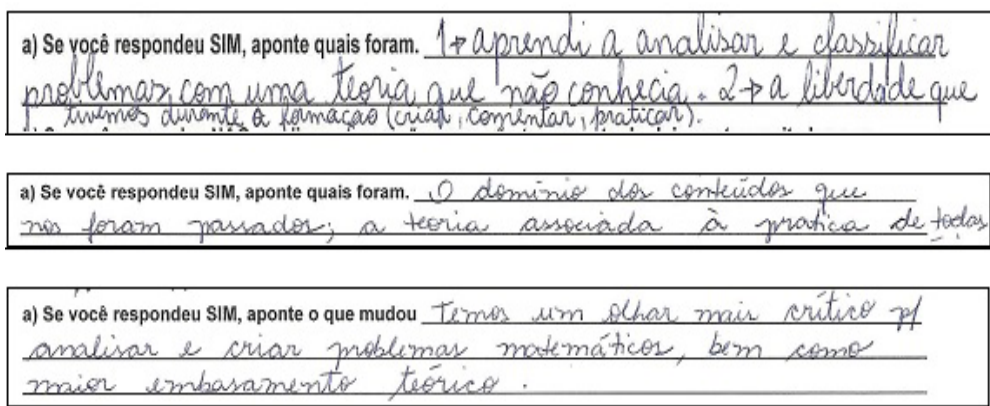 a) Se você respondeu SIM, aponte quais foram. 1→ aprendi a analisar e classificar
problemas com uma teoria que não conhecia. 2→ a liberdade que
tivemos durante a formação (criar, comentar, praticar).
a) Se você respondeu SIM, aponte quais foram. O domínio dos conteúdos que
nos foram passados; a teoria associada à pratica de todas
a) Se você respondeu SIM, aponte o que mudou Temos um olhar mais crítico p/
analisar e criar problemas matemáticos, bem como
maior embasamento teórico.